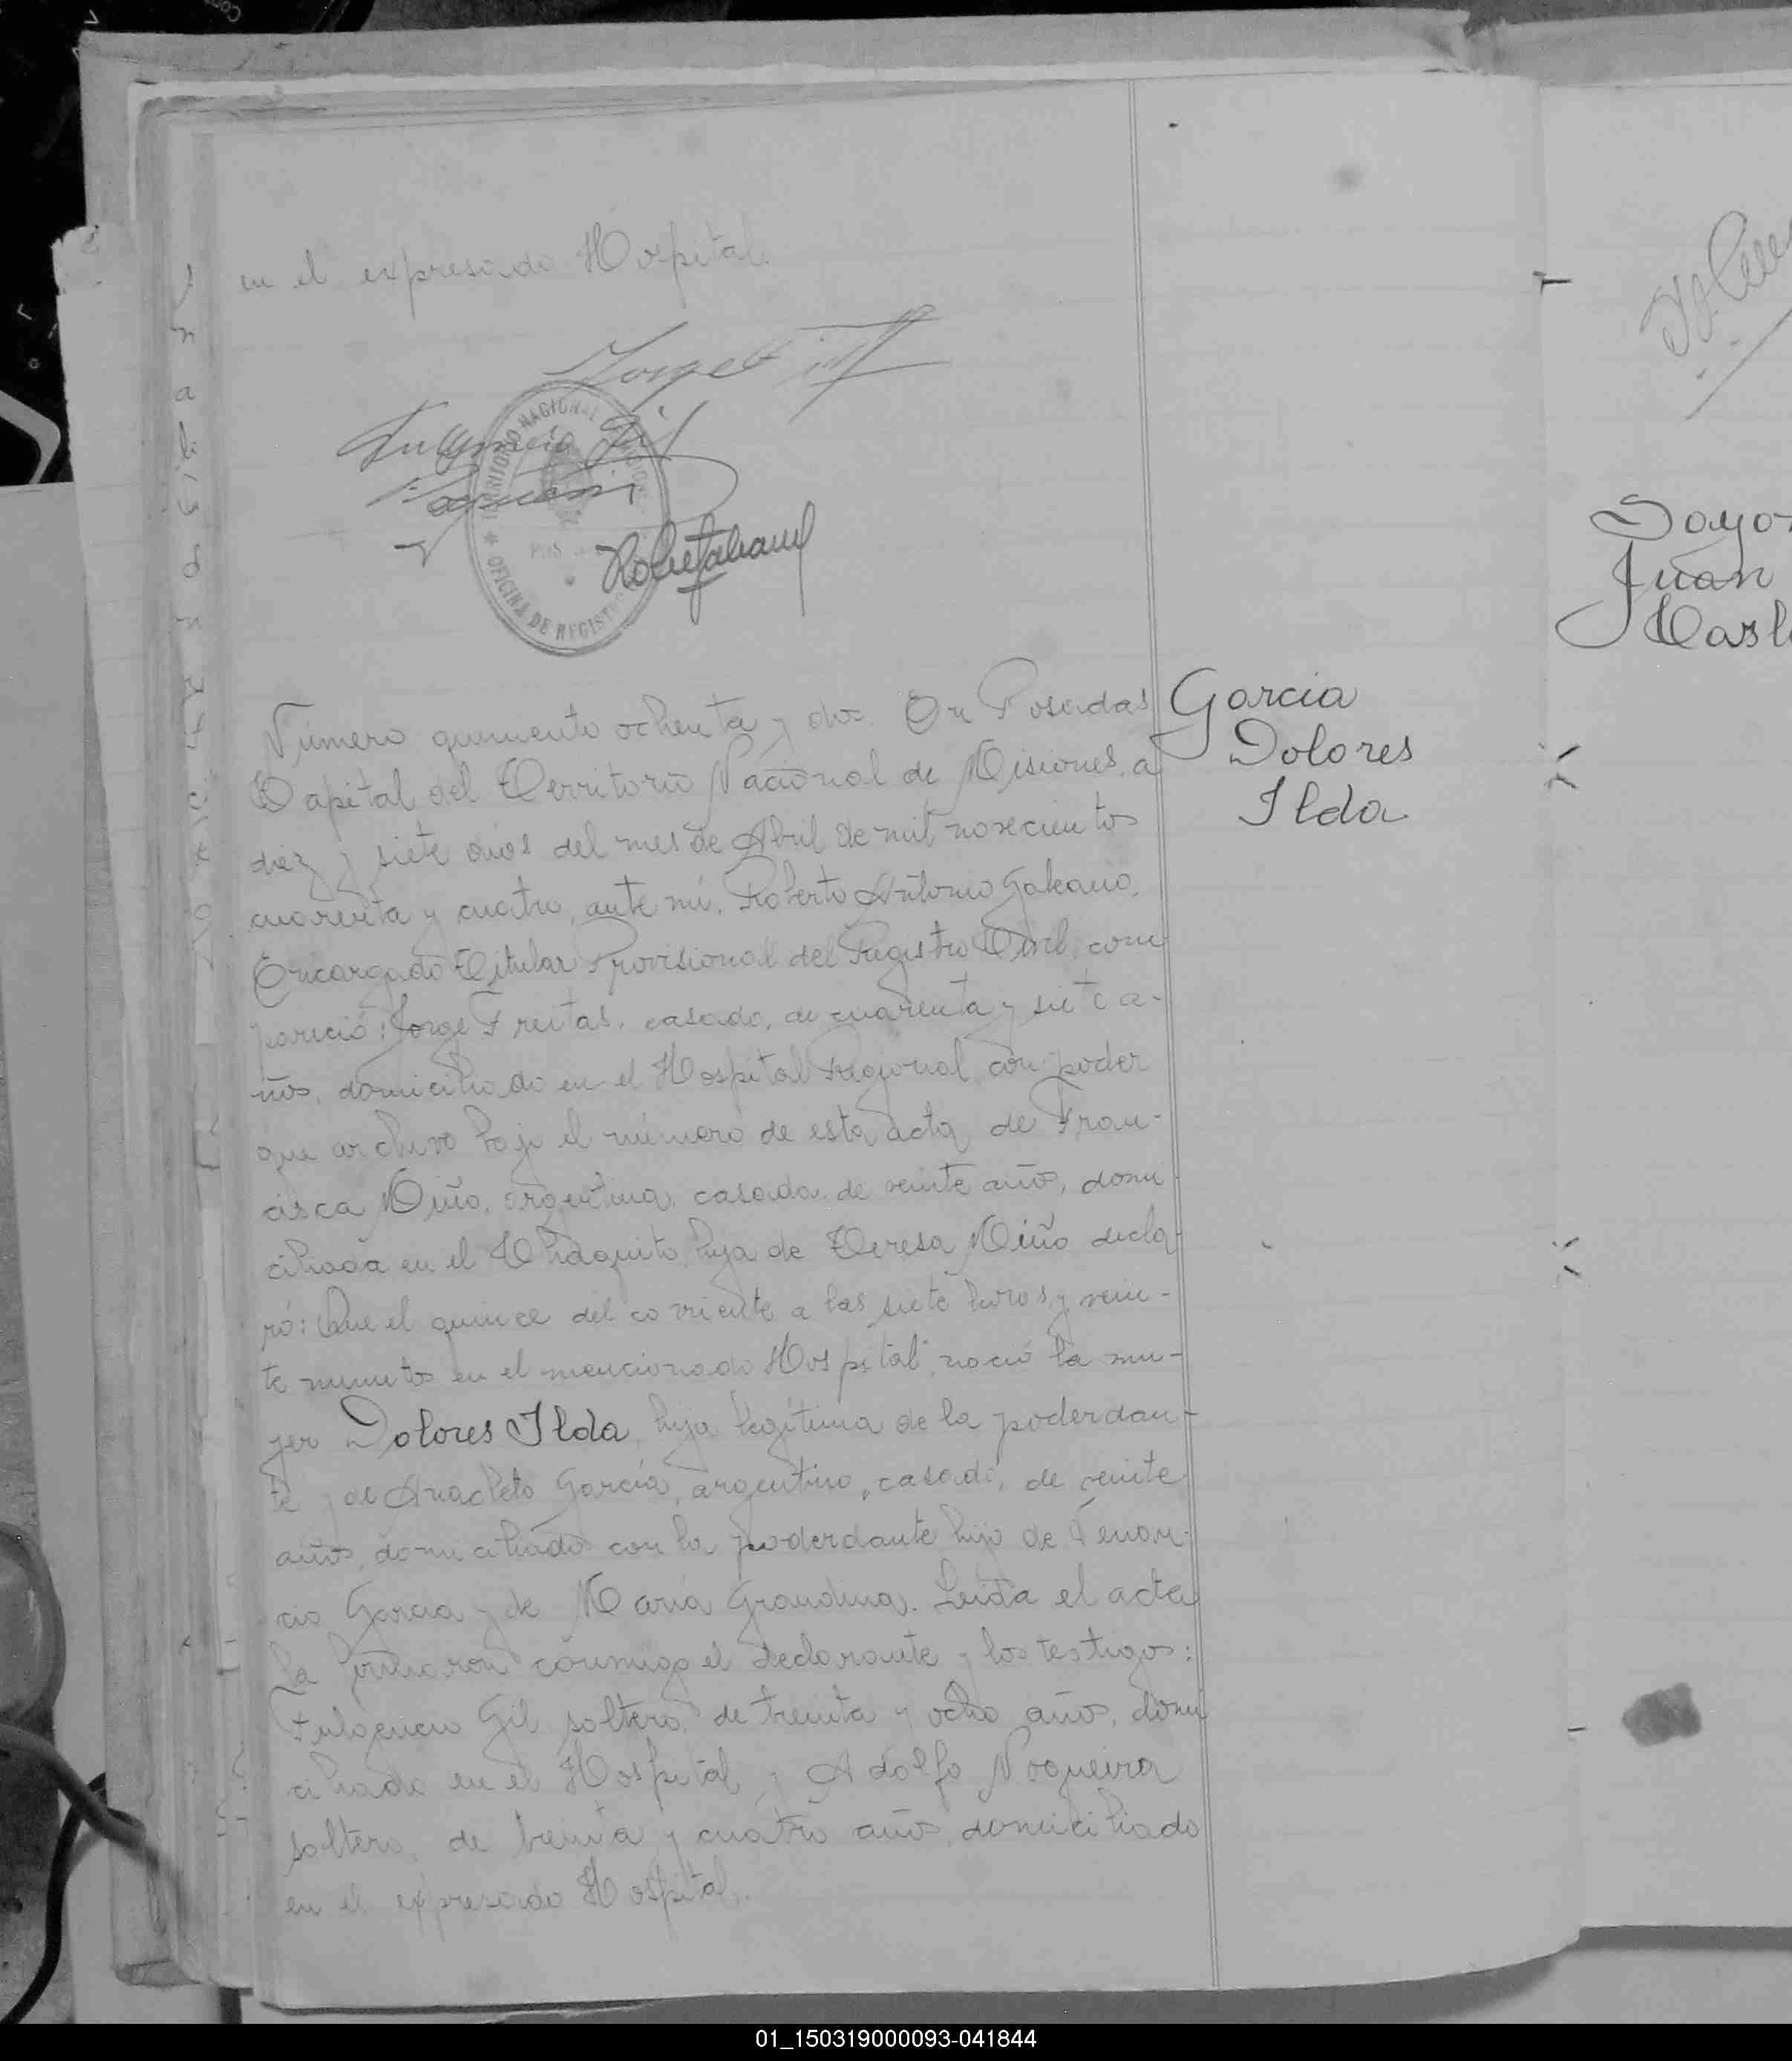 en el expresado Hospital.
TERRITORIO NACIONAL
OFICINA DE REGISTRO
Garcia
Dolores
Ilda
Número quinientos ochenta y dos. En Posadas
Capital del Territorio Nacional de Misiones, a
diez y siete dias del mes de Abril de mil novecientos
cuarenta y cuatro, ante mi, Roberto Antonio Galeano,
Encargado Titular Provisional del Registro Civil, com
pareció: Jorge Freitas, casado, de cuarenta y siete a-
ños, domiciliado en el Hospital Regional, con poder
que archivo bajo el número de esta acta, de Fran-
cisca Miño, argentina, casada, de veinte años, domi
ciliada en el Chaquito, hija de Teresa Miño decla-
ró: Que el quince del corriente a las siete horas y vein-
te minutos en el mencionado Hospital, nació la mu-
jer Dolores Ilda, hija legítima de la poderdan-
te y de Anacleto García, argentino, casado, de veinte
años, domiciliado con la poderdante hijo de Venan-
cio Garcia y de Maria Grandina. Leida el acta
la firmaron conmigo el declarante y los testigos:
Fulgencio Gil, soltero, de treinta y ocho años, domi
ciliado en el Hospital y Adolfo Nogueira
soltero, de treinta y cuatro años, domiciliado
en el expresado Hospital.
Juan
01_150319000093-041844